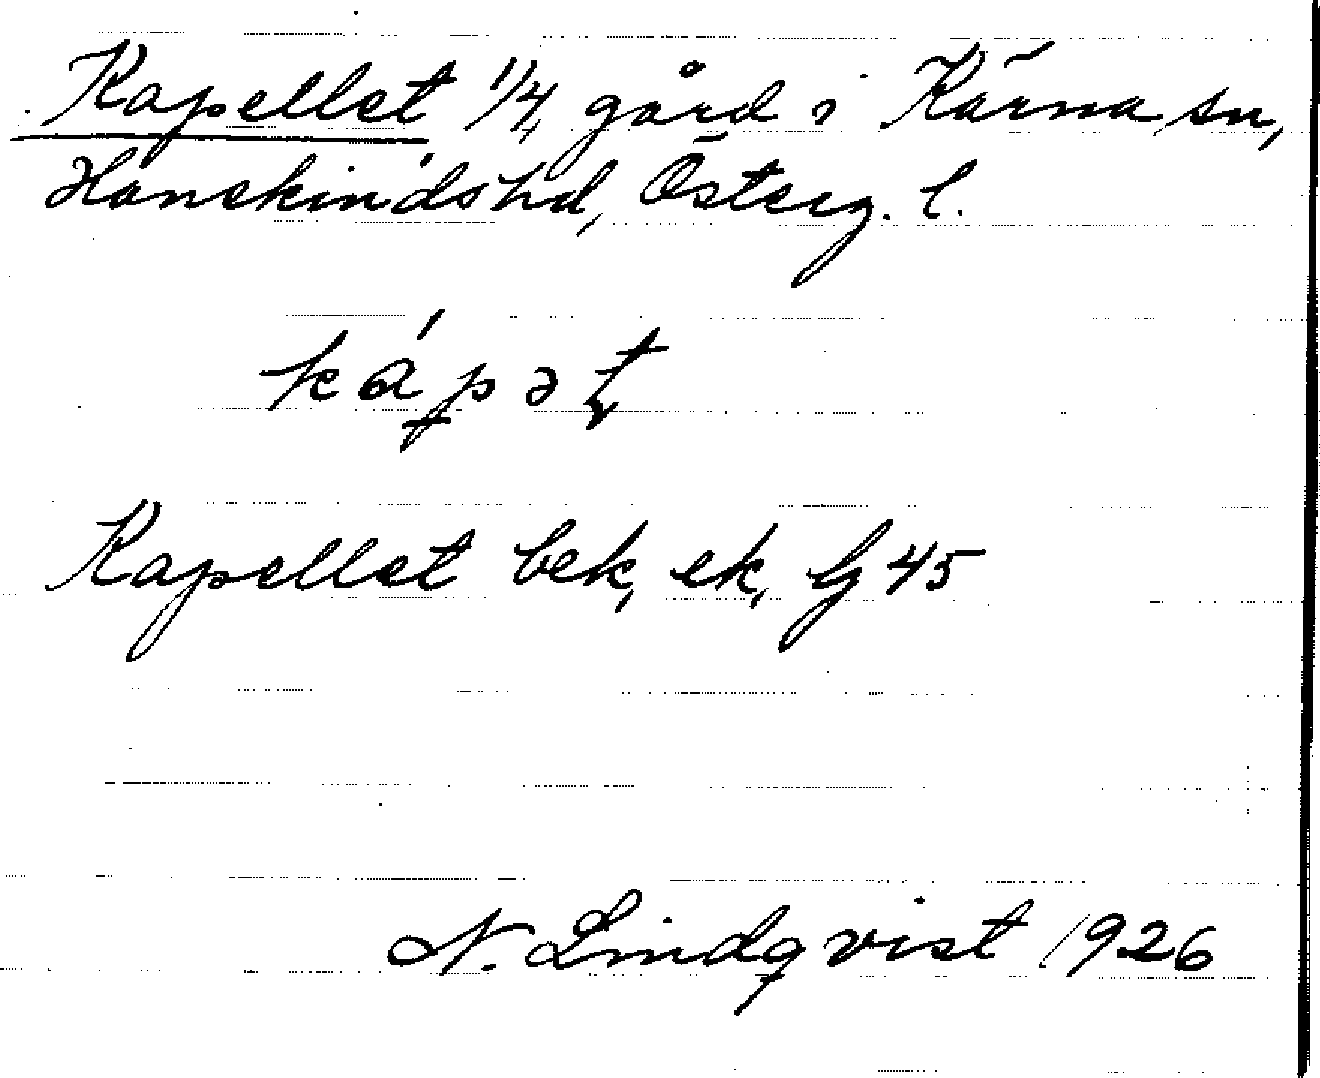 Kapellet 1/4 gård i Kärna sn,
Hanekinds hd, Österg. l.
kápət
Kapellet bek, ek, bl 45
N. Lindqvist 1926